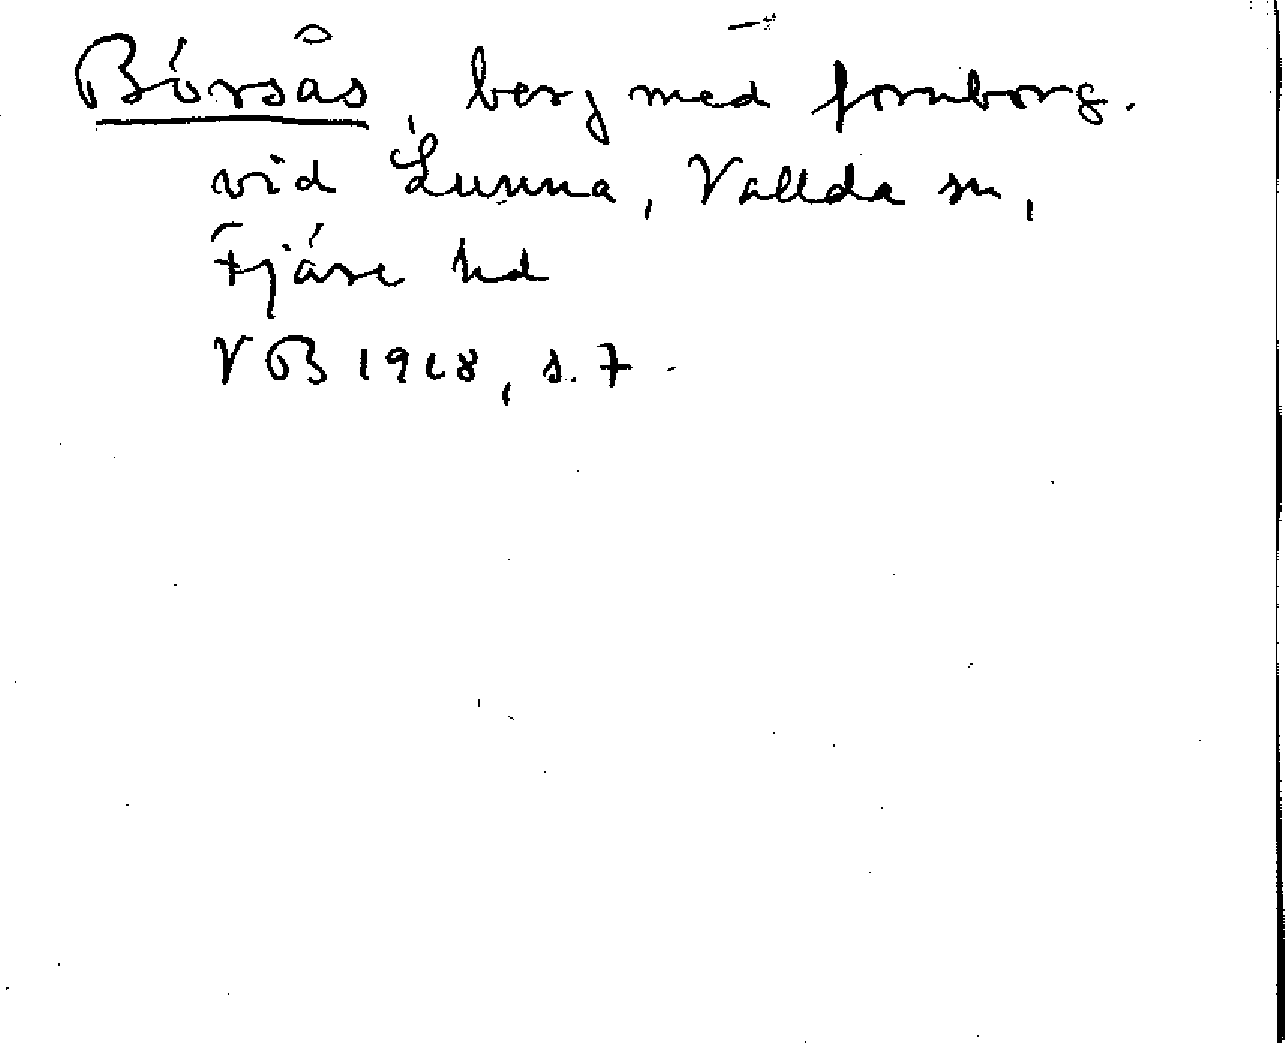 Börsås, berg med fornborg.
vid Lunna, Vallda sn,
Fjäre hd
VB 1968, s. 7